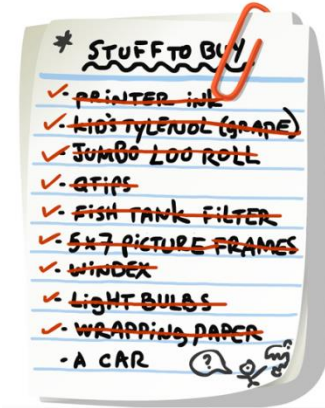 * STUFF TO BUY
- PRINTER INK
- KID'S TYLENOL (GRAPE)
- JUMBO LOO ROLL
- QTIPS
- FISH TANK FILTER
- 5x7 PICTURE FRAMES
- WINDEX
- LIGHT BULBS
- WRAPPING PAPER
- A CAR
?